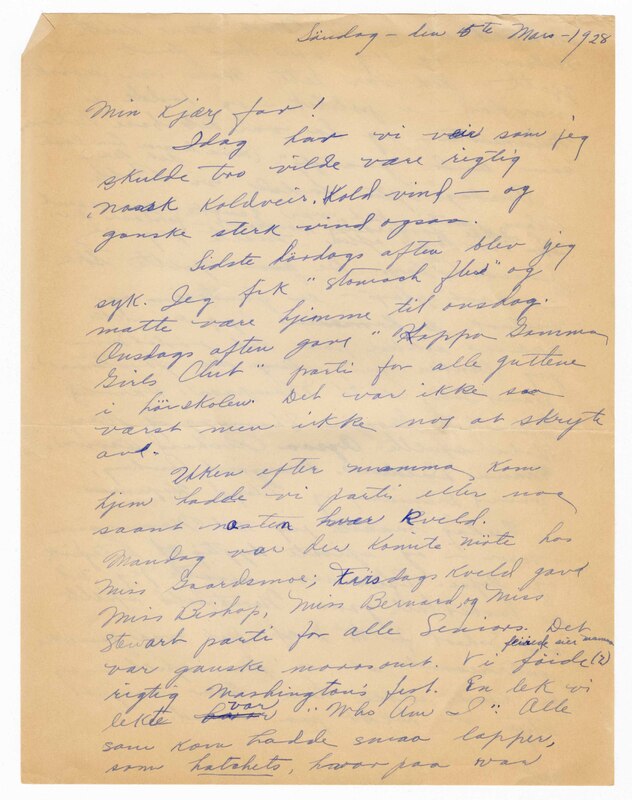 Søndag – den 5te Mars – 1928
Min Kjære far!
Idag har vi veir som jeg
skulde tro vilde være rigtig
norsk Koldveir. Kold vind – og
ganske sterk vind ogsaa.
Sidste lördags aften blev jeg
syk. Jeg fik "stomach flue" og
matte være hjemme til onsdag.
Onsdags aften gave "Kappa Gamma
Girls Club" parti for alle guttene
i höiskolen. Det var ikke saa
værst men ikke nog at skryte
avl.
Uken efter mamma kom
hjem hadde vi parti eller nog
saant næsten hver Kveld.
Mandag var der Komite möte hos
Miss Gaardsmoe; Tirsdags Kveld gave
Miss Bishop, Miss Bernard, og Miss
Stewart parti for alle Seniors. Det
var ganske morosomt. Vi föide (?)
feirede sier mamma
rigtig Washington's fest. En lek vi
lekte var "Who Am I". Alle
som kom hadde smaa lapper,
som hatchets, hvor paa var